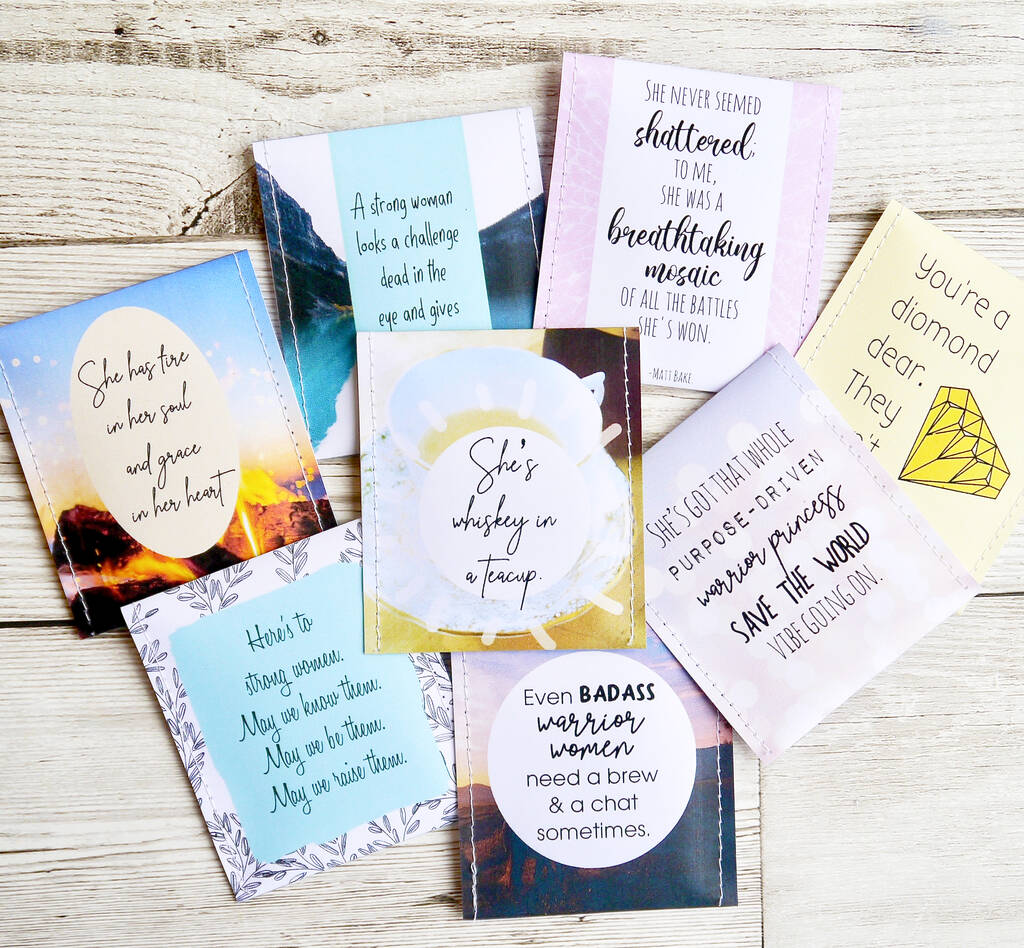 A strong woman
looks a challenge
dead in the
eye and gives
SHE NEVER SEEMED
shattered;
TO ME,
SHE WAS A
breathtaking
mosaic
OF ALL THE BATTLES
SHE'S WON.
-MATT BAKE.
you're a
diomond
dear.
They
She has fire
in her soul
and grace
in her heart
She's
whiskey in
a teacup.
SHE'S GOT THAT WHOLE
PURPOSE-DRIVEN
warrior princess
SAVE THE WORLD
VIBE GOING ON.
Here's to
strong women.
May we know them.
May we be them.
May we raise them.
Even BADASS
warrior
women
need a brew
& a chat
sometimes.